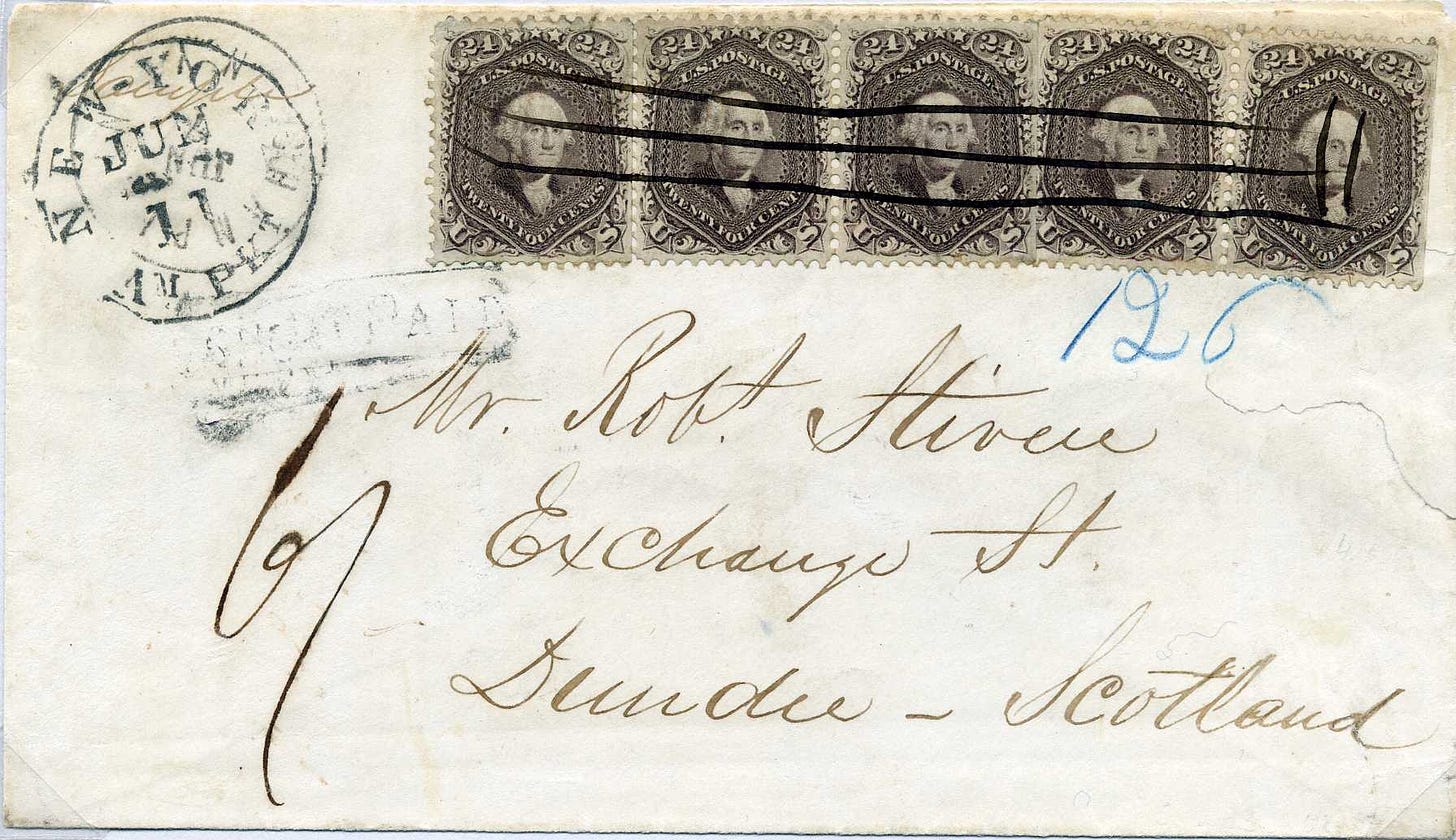 24 24 24 24 24 24 24 24 24 24
U.S. POSTAGE U.S. POSTAGE U.S. POSTAGE U.S. POSTAGE U.S. POSTAGE
TWENTY FOUR CENTS TWENTY FOUR CENTS TWENTY FOUR CENTS TWENTY FOUR CENTS TWENTY FOUR CENTS
U S U S U S U S U S
NEW YORK
JUN
11
AM PKT
PAID
12
Mr. Robt Stiven
Exchange St.
Dundee - Scotland